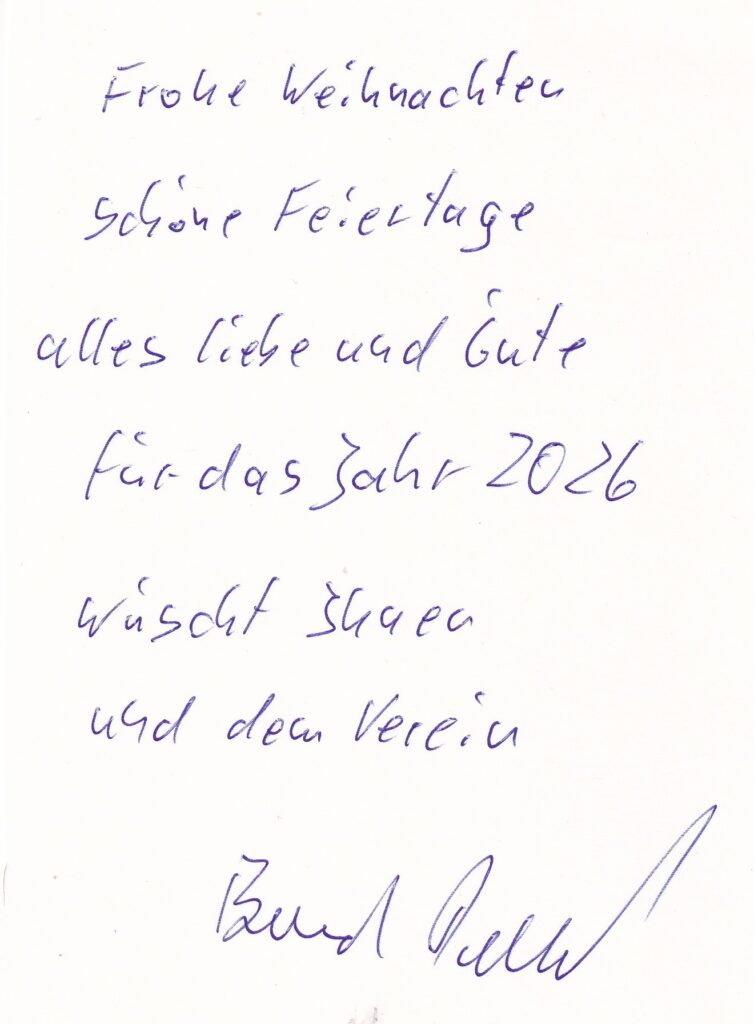 Frohe Weihnachten
schöne Feiertage
alles liebe und Gute
für das Jahr 2026
wüscht Ihnen
und dem Verein
Bernd